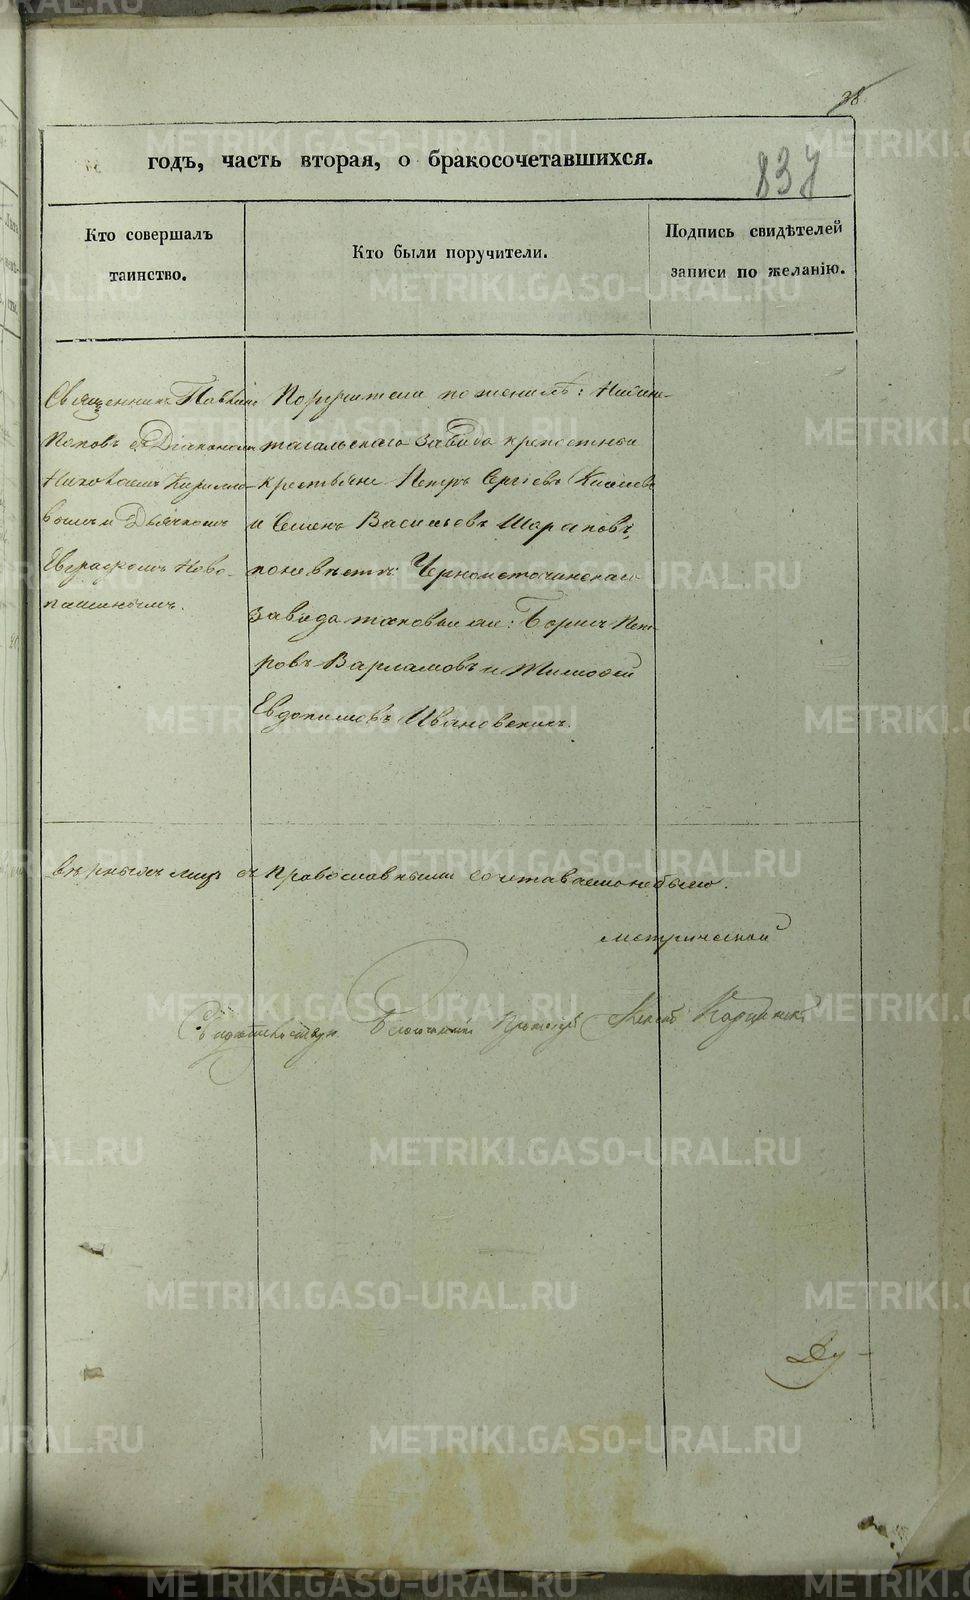 38.
837
годъ, часть вторая, о бракосочетавшихся.
Кто совершалъ
таинство.
Кто были поручители.
Подпись свидѣтелей
записи по желанію.
Священникъ Павелъ
Поповъ съ Діакономъ
Николаемъ Кирилло-
вымъ и Дьячкомъ
Евграфомъ Ново-
пашинымъ.
Поручители по женихѣ: Нижне-
тагильскаго завода крепостныи
крестьяне Петръ Сергіевъ
и Семенъ Васильевъ Шараповъ,
по невѣстѣ: Черноисточинскаго
завода таковыи жи: Борисъ Пет-
ровъ Варламовъ и Тимофей
Евдокимовъ Ивановскихъ.
вѣрныхъ лицъ съ православными сочетаваемо не было.
метрической
Ду-
METRIKI.GASO-URAL.RU